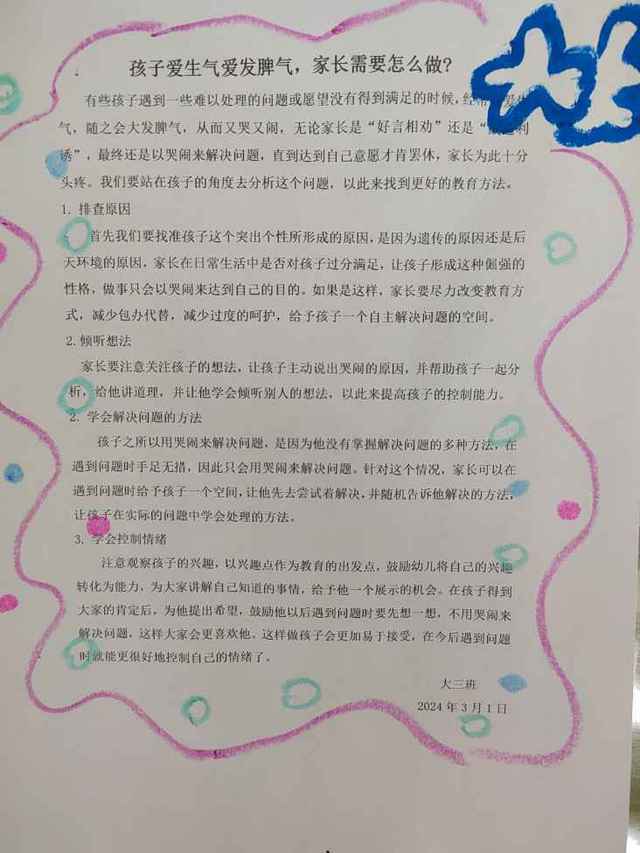 孩子爱生气爱发脾气，家长需要怎么做？
有些孩子遇到一些难以处理的问题或愿望没有得到满足的时候，经 爱生
气，随之会大发脾气，从而又哭又闹，无论家长是“好言相劝”还是“ 利
诱”，最终还是以哭闹来解决问题，直到达到自己意愿才肯罢休，家长为此十分
头疼。我们要站在孩子的角度去分析这个问题，以此来找到更好的教育方法。
1. 排查原因
首先我们要找准孩子这个突出个性所形成的原因，是因为遗传的原因还是后
天环境的原因，家长在日常生活中是否对孩子过分满足，让孩子形成这种倔强的
性格，做事只会以哭闹来达到自己的目的。如果是这样，家长要尽力改变教育方
式，减少包办代替，减少过度的呵护，给予孩子一个自主解决问题的空间。
2.倾听想法
家长要注意关注孩子的想法，让孩子主动说出哭闹的原因，并帮助孩子一起分
析，给他讲道理，并让他学会倾听别人的想法，以此来提高孩子的控制能力。
2. 学会解决问题的方法
孩子之所以用哭闹来解决问题，是因为他没有掌握解决问题的多种方法，在
遇到问题时手足无措，因此只会用哭闹来解决问题。针对这个情况，家长可以在
遇到问题时给予孩子一个空间，让他先去尝试着解决，并随机告诉他解决的方法，
让孩子在实际的问题中学会处理的方法。
3. 学会控制情绪
注意观察孩子的兴趣，以兴趣点作为教育的出发点，鼓励幼儿将自己的兴趣
转化为能力，为大家讲解自己知道的事情，给予他一个展示的机会。在孩子得到
大家的肯定后，为他提出希望，鼓励他以后遇到问题时要先想一想，不用哭闹来
解决问题，这样大家会更喜欢他。这样做孩子会更加易于接受，在今后遇到问题
时就能更很好地控制自己的情绪了。
大三班
2024 年 3 月 1 日